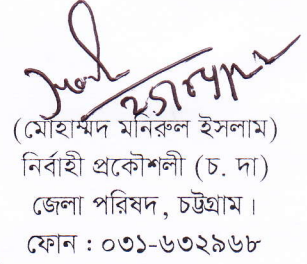 (মোহাম্মদ মনিরুল ইসলাম)
নির্বাহী প্রকৌশলী (চ. দা)
জেলা পরিষদ, চট্টগ্রাম।
ফোন : ০৩১-৬৩২৯৬৮